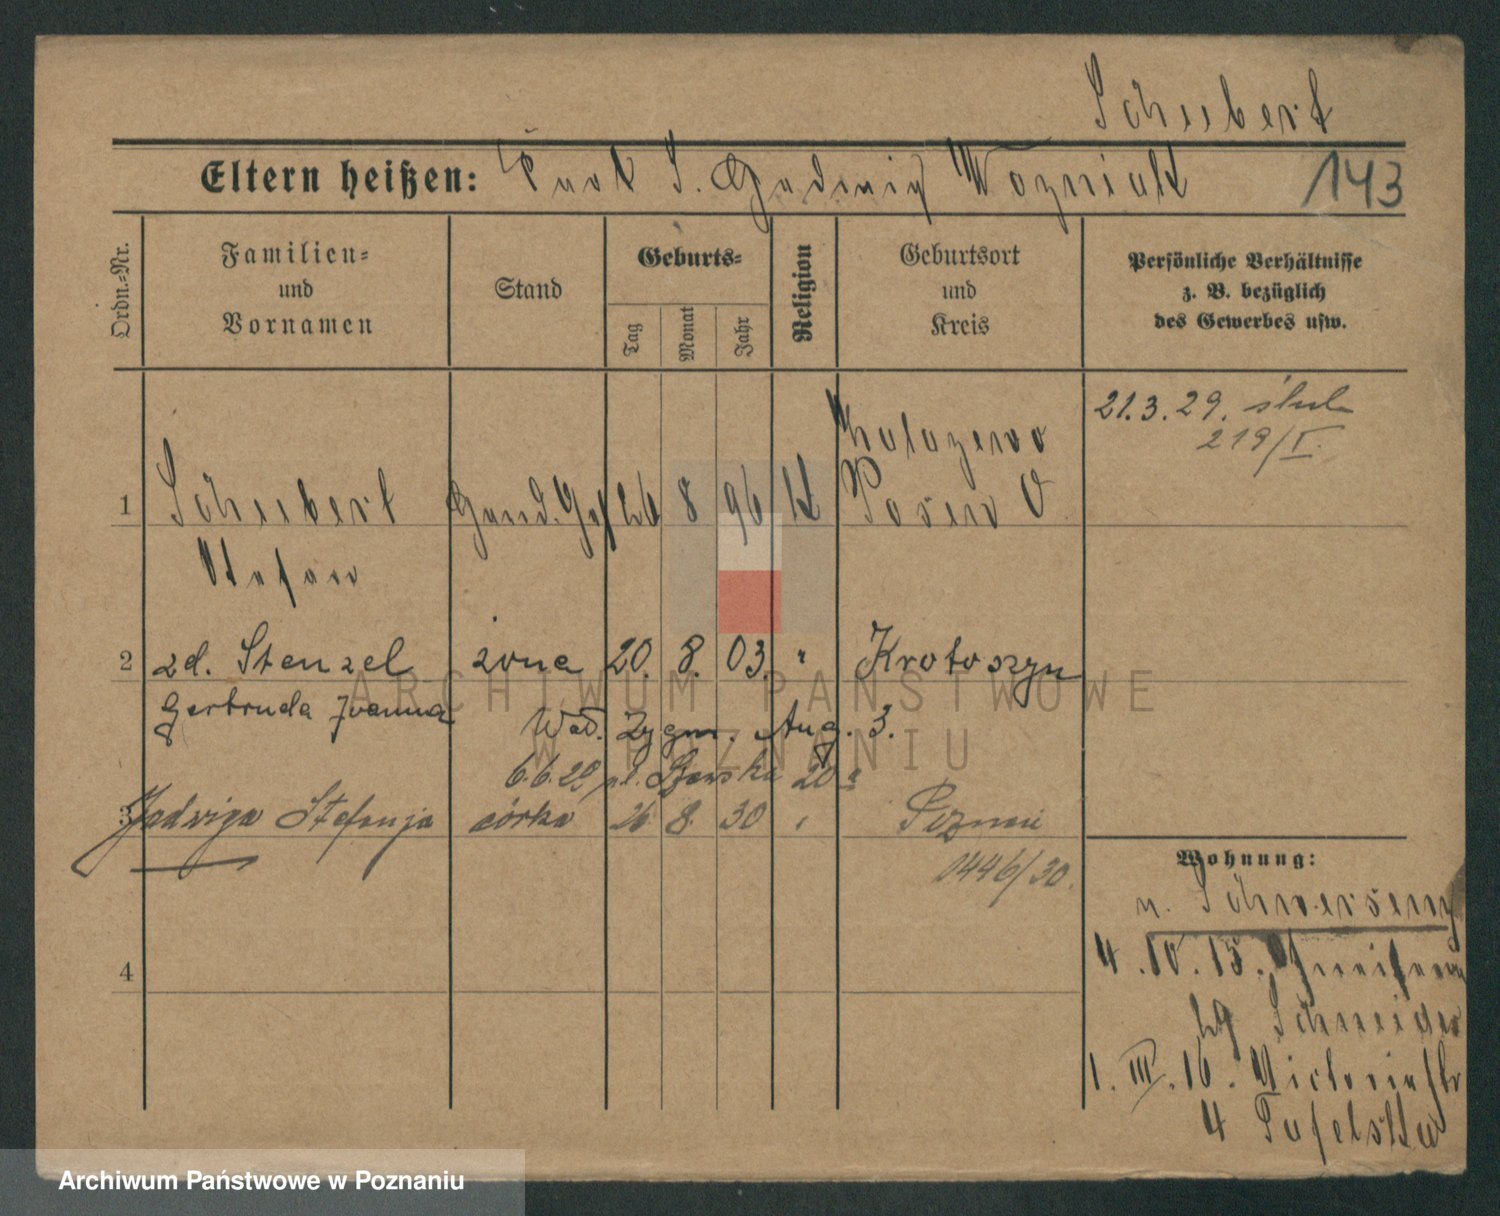 Schubert
Eltern heißen: Wozniak 143
Ordn.-Nr.
Familien-
und
Vornamen
Stand
Geburts-
Tag
Monat
Jahr
Religion
Geburtsort
und
Kreis
Persönliche Verhältnisse
z. B. bezüglich
des Gewerbes usw.
21.3.29. ślub
219/I.
1 Schubert 26 8 96 K Posen O
Stefan
2 zd. Stenzel żona 20. 8. 03. " Krotoszyn
Gertruda Joanna Wał. Zygm. Aug. 3.
6.6.29 pl. 20a
3 Jadwiga Stefanja córka 26. 8. 30 " Poznań
1446/30.
4
Wohnung:
n. Schwersenz
4.10.15.
b/ Schneider
1.III.16. Victoriastr
4
ARCHIWUM PAŃSTWOWE
W POZNANIU
Archiwum Państwowe w Poznaniu